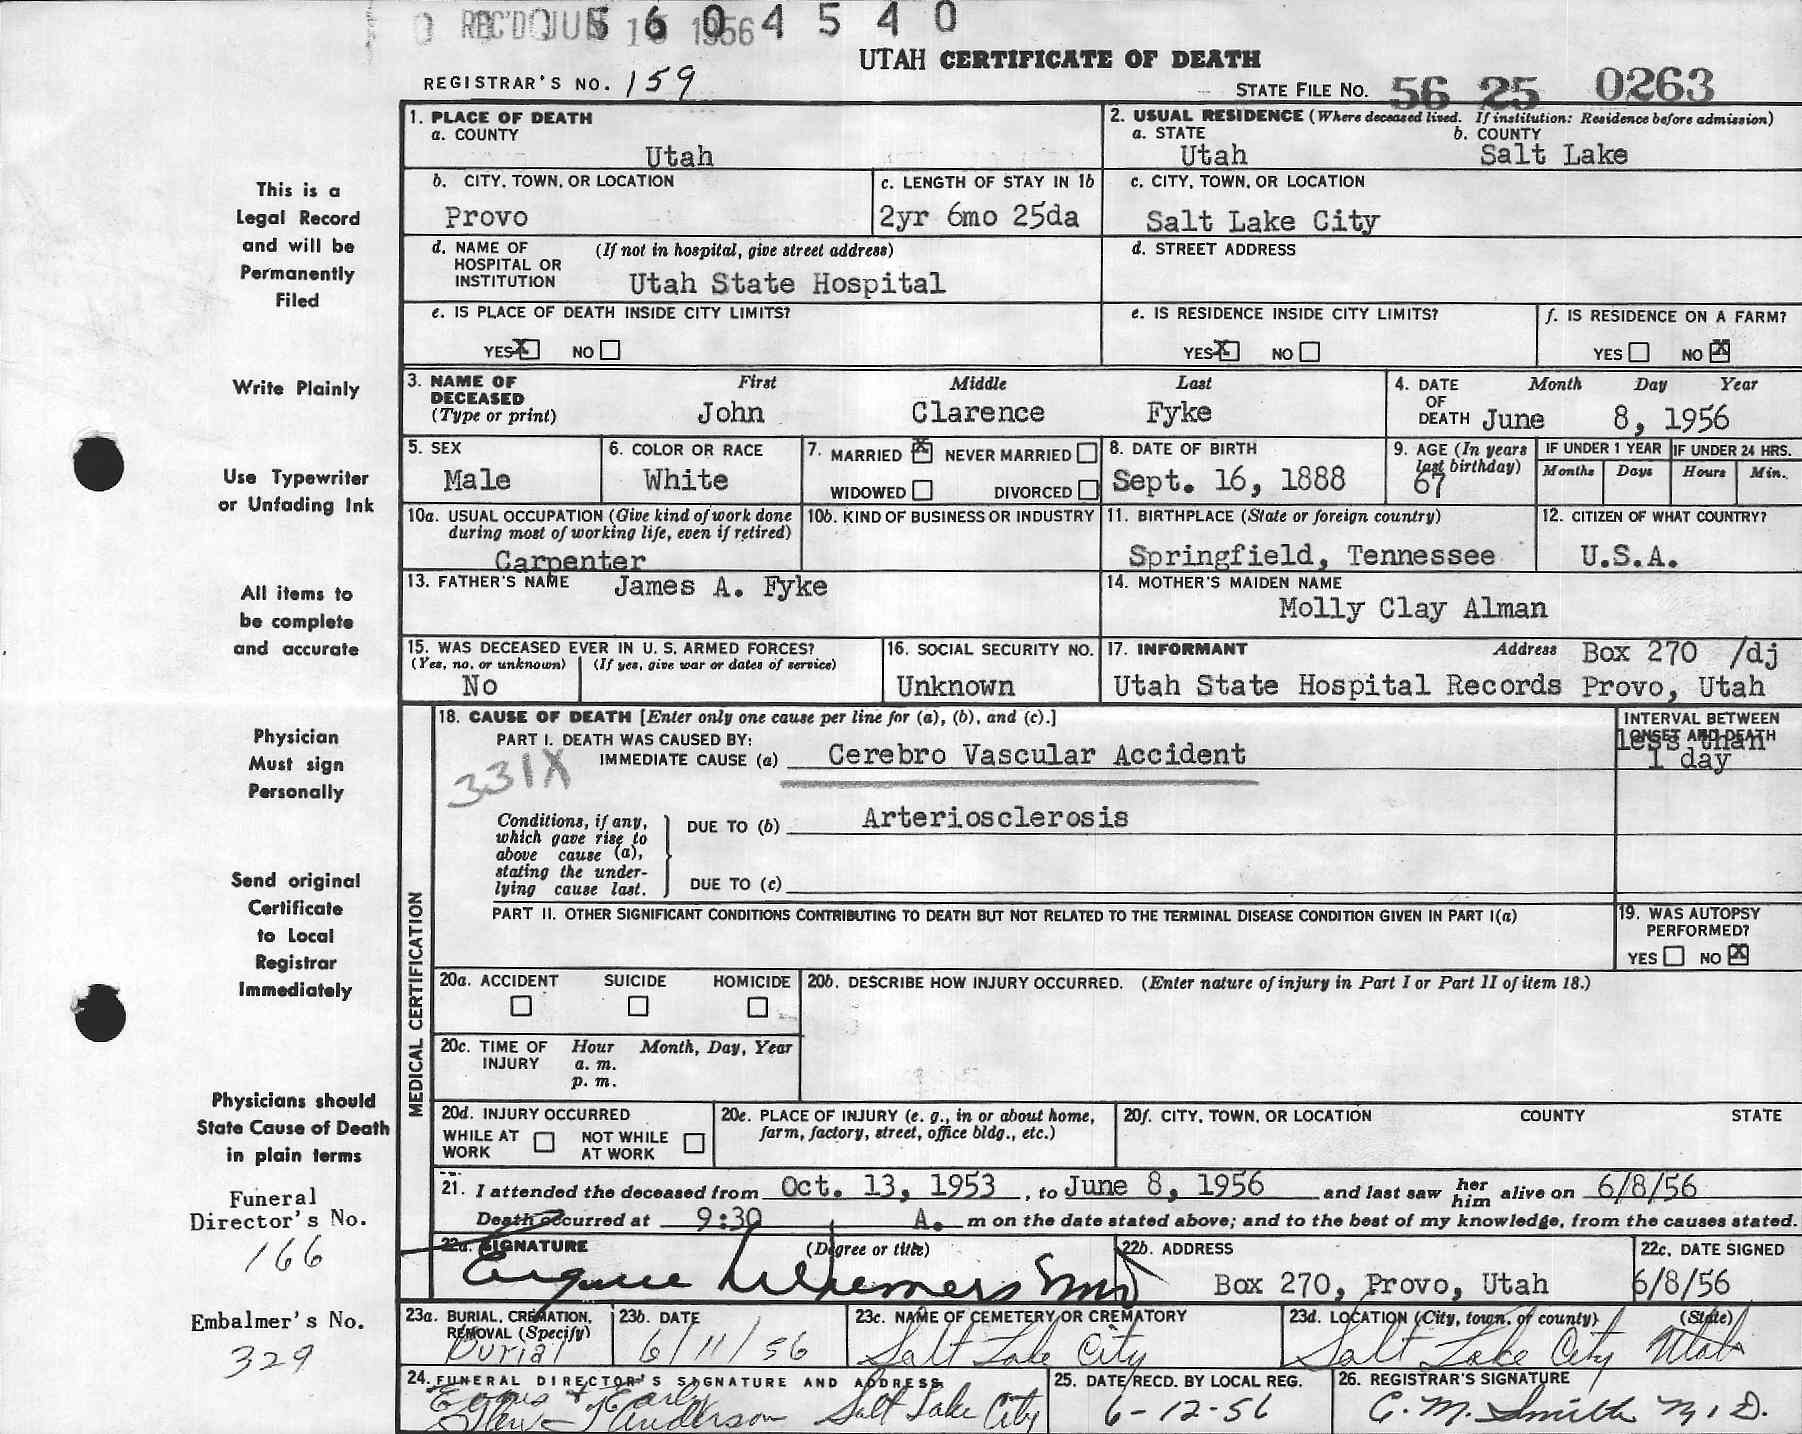 REC'D JUN 15 1956
5 6 0 4 5 4 0
UTAH CERTIFICATE OF DEATH
REGISTRAR'S NO. 159
STATE FILE NO. 56 25 0263
This is a Legal Record and will be Permanently Filed
Write Plainly
Use Typewriter or Unfading Ink
All items to be complete and accurate
Physician Must sign Personally
Send original Certificate to Local Registrar Immediately
Physicians should State Cause of Death in plain terms
Funeral Director's No.
166
Embalmer's No.
329
1. PLACE OF DEATH
a. COUNTY
Utah
2. USUAL RESIDENCE (Where deceased lived. If institution: Residence before admission)
a. STATE b. COUNTY
Utah Salt Lake
b. CITY, TOWN, OR LOCATION
Provo
c. LENGTH OF STAY IN 1b
2yr 6mo 25da
c. CITY, TOWN, OR LOCATION
Salt Lake City
d. NAME OF HOSPITAL OR INSTITUTION (If not in hospital, give street address)
Utah State Hospital
d. STREET ADDRESS
e. IS PLACE OF DEATH INSIDE CITY LIMITS?
YES X NO
e. IS RESIDENCE INSIDE CITY LIMITS?
YES X NO
f. IS RESIDENCE ON A FARM?
YES NO X
3. NAME OF DECEASED (Type or print) First Middle Last
John Clarence Fyke
4. DATE OF DEATH Month Day Year
June 8, 1956
5. SEX
Male
6. COLOR OR RACE
White
7. MARRIED X NEVER MARRIED
WIDOWED DIVORCED
8. DATE OF BIRTH
Sept. 16, 1888
9. AGE (In years last birthday)
67
IF UNDER 1 YEAR IF UNDER 24 HRS.
Months Days Hours Min.
10a. USUAL OCCUPATION (Give kind of work done during most of working life, even if retired)
Carpenter
10b. KIND OF BUSINESS OR INDUSTRY
11. BIRTHPLACE (State or foreign country)
Springfield, Tennessee
12. CITIZEN OF WHAT COUNTRY?
U.S.A.
13. FATHER'S NAME James A. Fyke
14. MOTHER'S MAIDEN NAME
Molly Clay Alman
15. WAS DECEASED EVER IN U. S. ARMED FORCES?
(Yes, no, or unknown) (If yes, give war or dates of service)
No
16. SOCIAL SECURITY NO.
Unknown
17. INFORMANT Address Box 270 /dj
Utah State Hospital Records Provo, Utah
MEDICAL CERTIFICATION
18. CAUSE OF DEATH [Enter only one cause per line for (a), (b), and (c).]
INTERVAL BETWEEN ONSET AND DEATH
PART I. DEATH WAS CAUSED BY:
IMMEDIATE CAUSE (a) Cerebro Vascular Accident
less than 1 day
331X
Conditions, if any, which gave rise to above cause (a), stating the underlying cause last.
DUE TO (b) Arteriosclerosis
DUE TO (c)
PART II. OTHER SIGNIFICANT CONDITIONS CONTRIBUTING TO DEATH BUT NOT RELATED TO THE TERMINAL DISEASE CONDITION GIVEN IN PART I(a)
19. WAS AUTOPSY PERFORMED?
YES NO X
20a. ACCIDENT SUICIDE HOMICIDE
20b. DESCRIBE HOW INJURY OCCURRED. (Enter nature of injury in Part I or Part II of item 18.)
20c. TIME OF INJURY Hour Month, Day, Year
a. m.
p. m.
20d. INJURY OCCURRED
WHILE AT WORK NOT WHILE AT WORK
20e. PLACE OF INJURY (e. g., in or about home, farm, factory, street, office bldg., etc.)
20f. CITY, TOWN, OR LOCATION COUNTY STATE
21. I attended the deceased from Oct. 13, 1953, to June 8, 1956 and last saw her him alive on 6/8/56
Death occurred at 9:30 A. m on the date stated above; and to the best of my knowledge, from the causes stated.
22a. SIGNATURE (Degree or title)
Eugene
22b. ADDRESS
Box 270, Provo, Utah
22c. DATE SIGNED
6/8/56
23a. BURIAL, CREMATION, REMOVAL (Specify)
Burial
23b. DATE
6/11/56
23c. NAME OF CEMETERY OR CREMATORY
Salt Lake City
23d. LOCATION (City, town, or county) (State)
Salt Lake City Utah
24. FUNERAL DIRECTOR'S SIGNATURE AND ADDRESS
Anderson Salt Lake City
25. DATE RECD. BY LOCAL REG.
6-12-56
26. REGISTRAR'S SIGNATURE
C. M. Smith M. D.